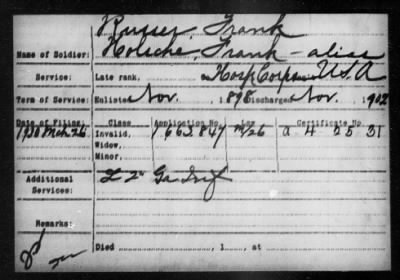 Russer, Frank
Name of Soldier: Holsche, Frank - alias
Service: Late rank, Hosp Corps U.S.A
Term of Service: Enlisted Nov., 1898 Discharged Nov., 1902
Date of Filing: Class Application No. Law Certificate No.
1930 Mch 26 Invalid, 1662847 M/26 a 4 25 31
Widow,
Minor,
Additional Services: L 2" Ga Inf
Remarks:
Died , 1 , at